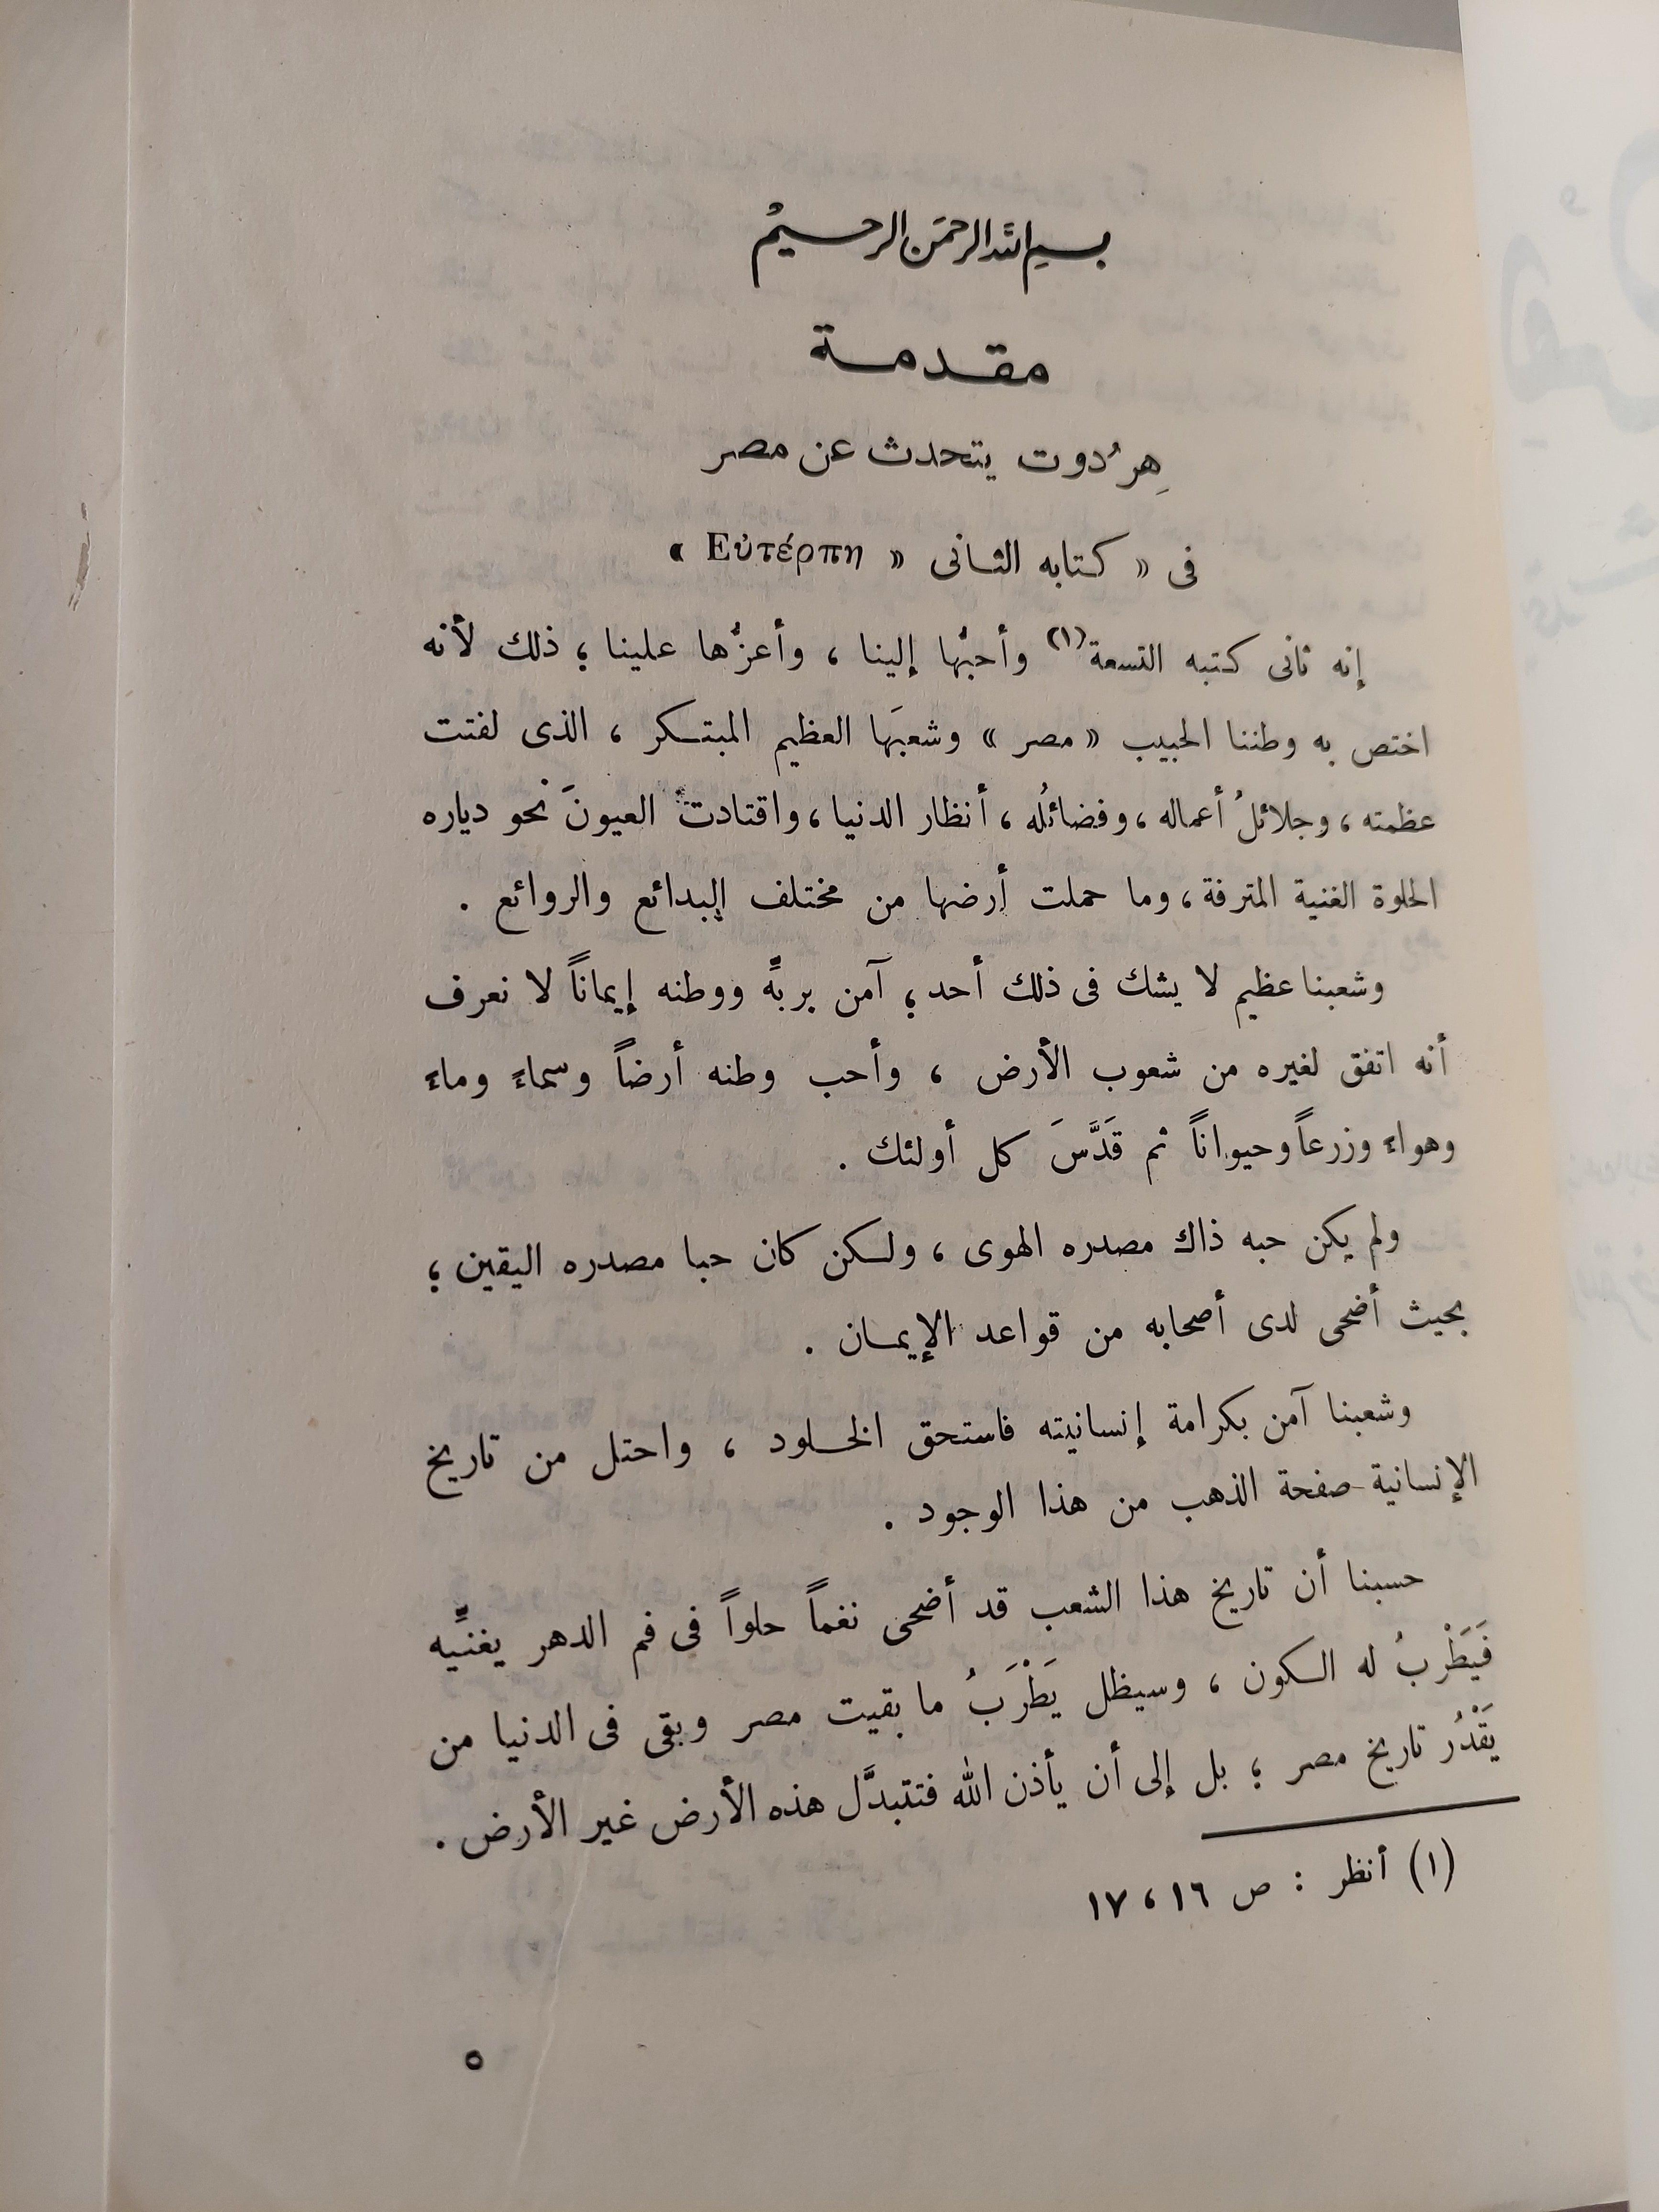 بسم الله الرحمن الرحيم
مقدمة
هِرُدوت يتحدث عن مصر
فى « كتابه الثانى « Εὐτέρπη »
إنه ثانى كتبه التسعة(١) وأحبُّها إلينا ، وأعزُّها علينا ؛ ذلك لأنه
اختص به وطننا الحبيب « مصر » وشعبَها العظيم المبتكر ، الذى لفتت
عظمته ، وجلائلُ أعماله ، وفضائلُه ، أنظار الدنيا ، واقتادت العيونَ نحو دياره
الحلوة الغنية المترفة ، وما حملت أرضها من مختلف البدائع والروائع .
وشعبنا عظيم لا يشك فى ذلك أحد ؛ آمن بربِّه ووطنه إيماناً لا نعرف
أنه اتفق لغيره من شعوب الأرض ، وأحب وطنه أرضاً وسماءً وماءً
وهواء وزرعاً وحيواناً ثم قَدَّسَ كل أولئك .
ولم يكن حبه ذاك مصدره الهوى ، ولكن كان حبا مصدره اليقين ؛
بحيث أضحى لدى أصحابه من قواعد الإيمان .
وشعبنا آمن بكرامة إنسانيته فاستحق الخلود ، واحتل من تاريخ
الإنسانية صفحة الذهب من هذا الوجود .
حسبنا أن تاريخ هذا الشعب قد أضحى نغماً حلواً فى فم الدهر يغنيِّه
فَيَطْرَبُ له الكون ، وسيظل يَطْرَبُ ما بقيت مصر وبقى فى الدنيا من
يَقْدُر تاريخ مصر ؛ بل إلى أن يأذن الله فتتبدَّل هذه الأرض غير الأرض .
(١) أنظر : ص ١٦ ، ١٧
٥